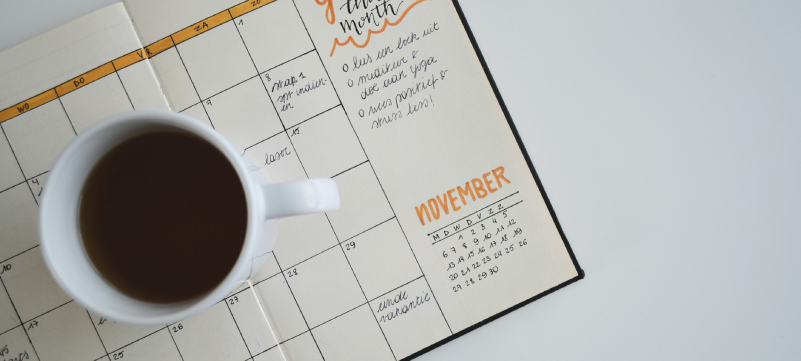 WD DO VR ZA ZO
1
8
stap 1
indien-
en
9
15
laser
4
10
17
25
26
27
28
29
einde
vakantie
this
month
o lees een boek uit
o mediteer &
doe aan yoga
o wees positief &
stress less!
NOVEMBER
M D W D V Z Z
1 2 3 4 5
6 7 8 9 10 11 12
13 14 15 16 17 18 19
20 21 22 23 24 25 26
27 28 29 30